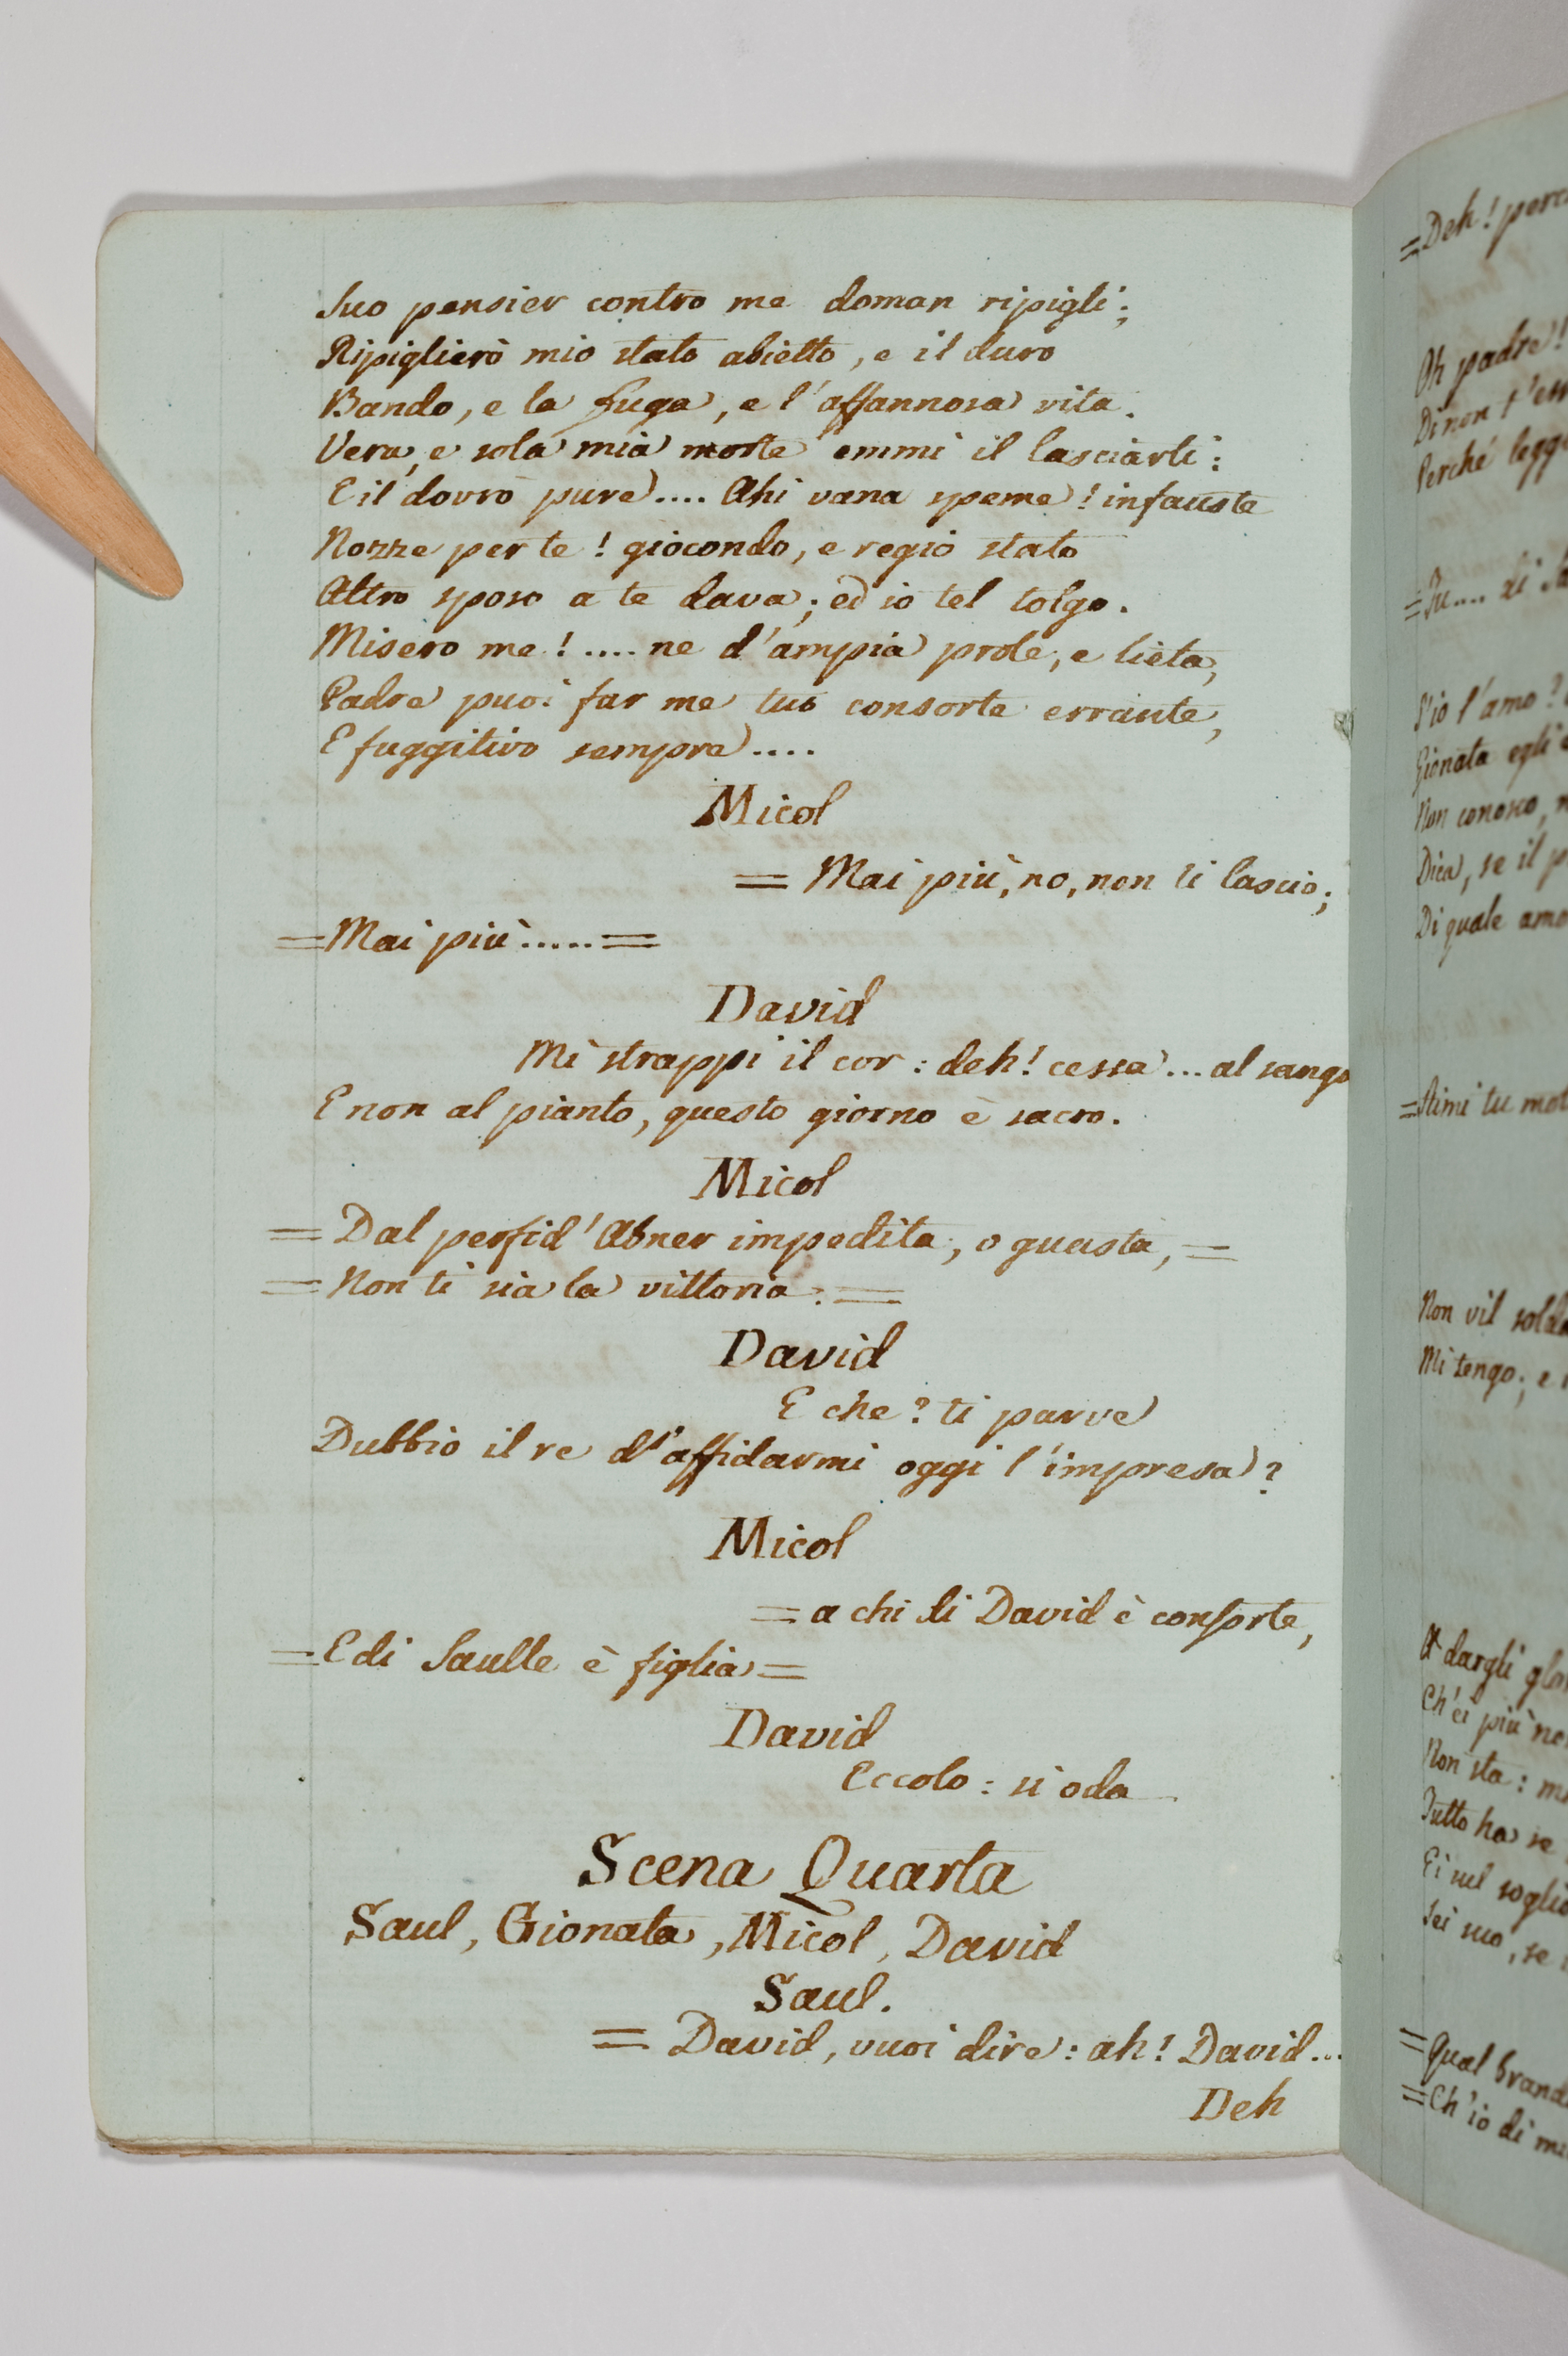 Suo pensier contro me doman ripigli;
Ripiglierò mio stato abietto, e il duro
Bando, e la fuga, e l'affannosa vita.
Vera, e sola mia morte emmi il lasciarti:
E il dovrò pure.... Ahi vana speme! infauste
Nozze per te! giocondo, e regio stato
Altro sposo a te dava; ed io tel tolgo.
Misero me!.... ne d'ampia prole, e lieta,
Padre puoi far me tuo consorte errante,
E fuggitivo sempre....
Micol
= Mai più, no, non ti lascio;
= Mai più..... =
David
Mi strappi il cor: deh! cessa... al sangue
E non al pianto, questo giorno è sacro.
Micol
= Dal perfid' Abner impedita, o guasta, =
= Non ti sia la vittoria. =
David
E che? ti parve
Dubbio il re d'affidarmi oggi l'impresa?
Micol
= a chi di David è consorte,
= E di Saulle è figlia =
David
Eccolo: si oda
Scena Quarta
Saul, Gionata, Micol, David
Saul.
= David, vuoi dire: ah! David...
Deh
= Deh!
Oh padre!
Di non t'
Perché
= Tu.... di
S'io l'amo?
Gionata egli
Non conosco,
Dica, se il
Di quale
= Stimi tu
Non vil
Mi tengo; e
A dargli
Ch'ei più
Non sta:
Tutto ha se
Ei sul
Sei suo, se
= Qual
= Ch'io di